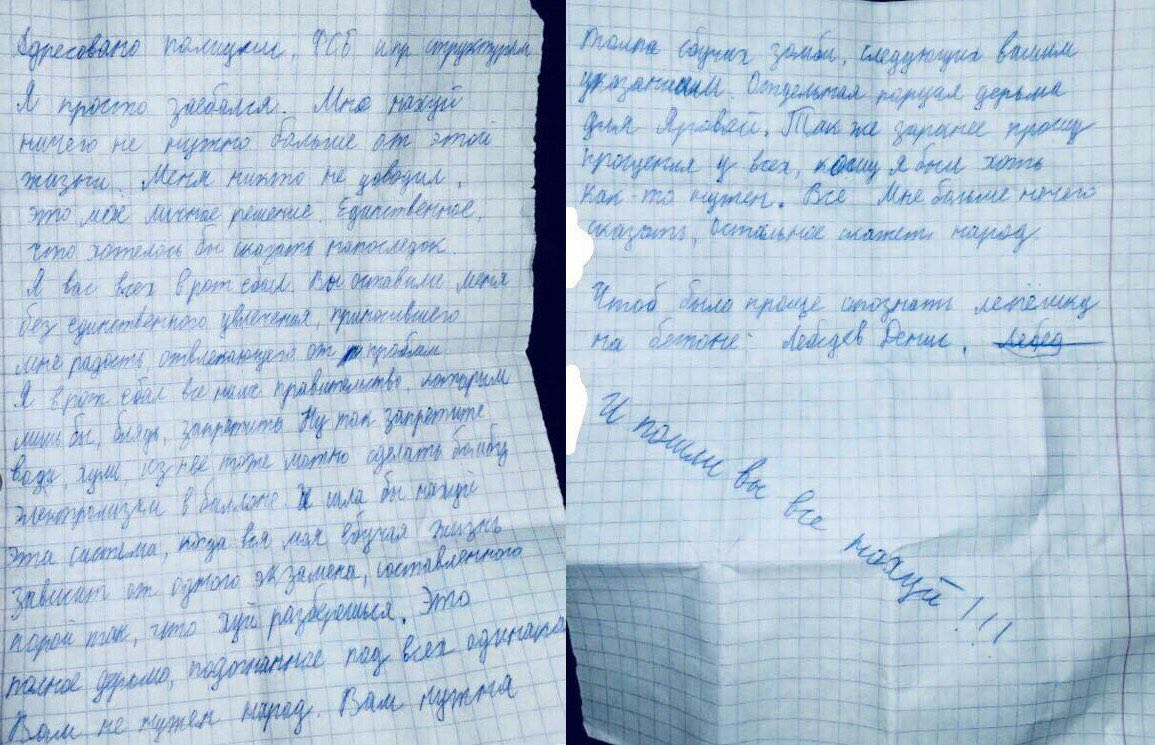 Адресовано полиции, ФСБ и пр структурам
Я просто заебался. Мне нахуй
ничего не нужно больше от этой
жизни. Меня никто не доводил,
это моё личное решение. Единственное,
что хотелось бы сказать напоследок.
Я вас всех в рот ебал. Вы оставили меня
без единственного увлечения, приносившего
мне радость, отвлекающего от проблем
Я в рот ебал все наше правительство, которым
лишь бы, блядь, запретить Ну так запретите
воду хули, из нее тоже можно сделать бомбу
электролизом в балляне. И шла бы нахуй
эта система, когда вся моя ебучая жизнь
зависит от одного экзамена, составленного
порой так, что хуй разберешься. Это
полное дерьмо, подогнанное под всех одинаково
Вам не нужен народ. Вам нужна
толпа ебучих зомби, следующих вашим
указаниям. Отдельная порция дерьма
для Яровой. Так же заранее прошу
прощения у всех, кому я был хоть
как то нужен. Все Мне больше нечего
сказать, остальное скажет народ
Чтоб было проще опознать лепёшку
на бетоне: Лебедев Денис. Лебед
И пошли вы все нахуй!!!